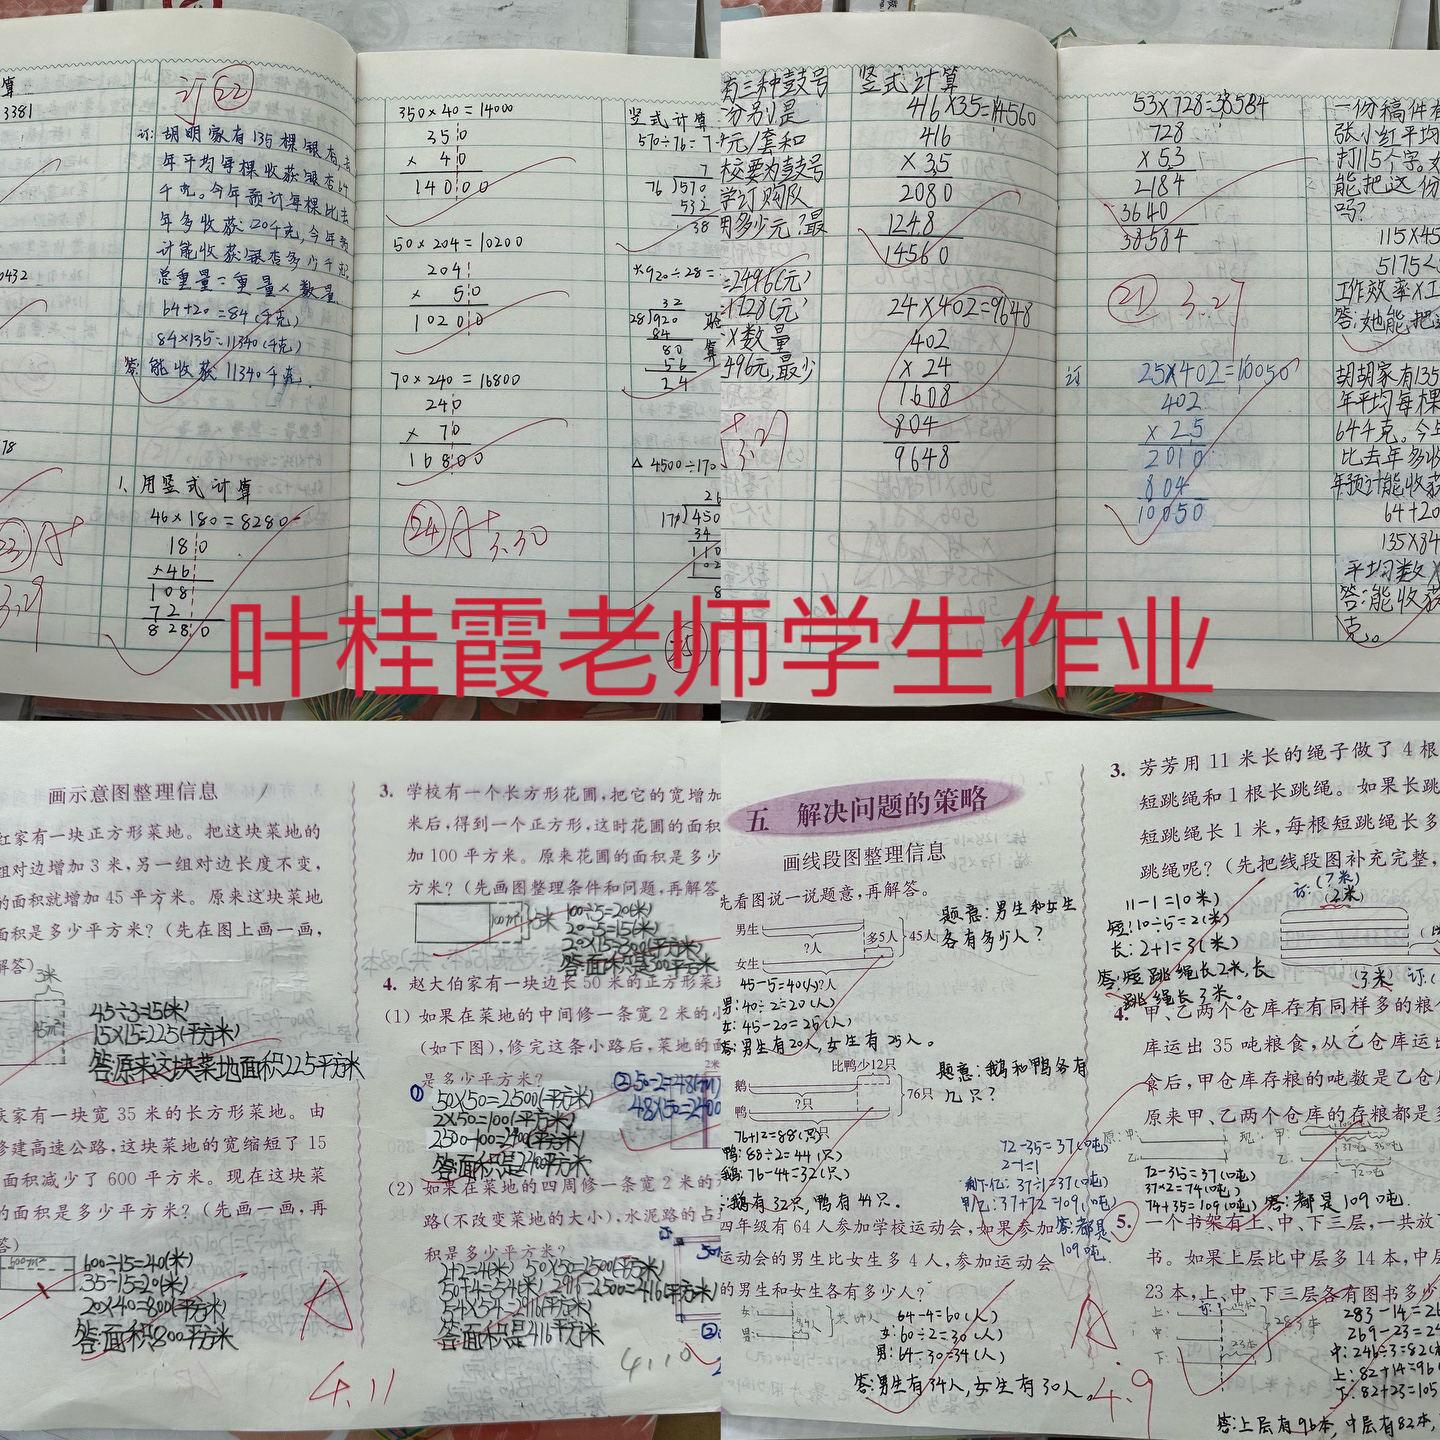 算
3381
订 22
订: 胡明家有135棵银杏,去
年平均每棵收获银杏64
千克。今年预计每棵比去
年多收获20千克,今年预
计能收获银杏多少千克
总重量=重量×数量
64+20=84(千克)
84×135=11340(千克)
答:能收获11340千克.
0432
78
1、用竖式计算
46×180=8280
180
×46
108
72
8280
23 A+
3.29
350×40=14000
350
× 40
14000
50×204=10200
204
× 50
10200
70×240=16800
240
× 70
16800
24 A+ 3.30
竖式计算
570÷76=7
7
76 570
532
38
*920÷28=
32
28 920
84
80
56
24
△4500÷170
26
450
34
110
102
8
25
有三种鼓号
分别是
元/套和
校要为鼓号
学订购队
用多少元?最
=2496(元)
=1728(元)
×数量
496元,最少
3.27
竖式计算
416×35=14560
416
×35
2080
1248
14560
24×402=9648
402
×24
1608
804
9648
53×728=38584
728
×53
2184
3640
38584
21 3.27
订 25×402=10050
402
×25
2010
804
10050
一份稿件有
张小红平均
打115个字。如
能把这份
吗?
115×45
5175<
工作效率×工
答:她能把这
胡胡家有135
年平均每棵
64千克。今年
比去年多收
年预计能收获
64+20
135×84
平均数×
答:能收获
克。
叶桂霞老师学生作业
画示意图整理信息
红家有一块正方形菜地。把这块菜地的
组对边增加3米,另一组对边长度不变,
的面积就增加45平方米。原来这块菜地
面积是多少平方米?(先在图上画一画,
解答)
3米
45÷3=15(米)
15×15=225(平方米)
答:原来这块菜地面积225平方米
家有一块宽35米的长方形菜地。由
修建高速公路,这块菜地的宽缩短了15
面积减少了600平方米。现在这块菜
的面积是多少平方米?(先画一画,再
答)
600÷15=40(米)
35-15=20(米)
20×40=800(平方米)
答:面积800平方米
A
4.11
3. 学校有一个长方形花圃,把它的宽增加
米后,得到一个正方形,这时花圃的面积
加100平方米。原来花圃的面积是多少
方米?(先画图整理条件和问题,再解答
5米
100÷5=20(米)
20-5=15(米)
20×15=300(平方米)
答:面积是300平方米
4. 赵大伯家有一块边长50米的正方形菜地
(1) 如果在菜地的中间修一条宽2米的小
(如下图),修完这条小路后,菜地的面
是多少平方米?
2米
① 50×50=2500(平方米)
2×50=100(平方米)
2500-100=2400(平方米)
答:面积是2400平方米
② 50-2=48(m)
48×50=2400
(2) 如果在菜地的四周修一条宽2米的
路(不改变菜地的大小),水泥路的占
积是多少平方米?
2+2=4(米) 50×50=2500(平方米)
50+4=54(米) 2916-2500=416(平方米)
54×54=2916(平方米)
答:面积是416平方米
4.10
五 解决问题的策略
画线段图整理信息
先看图说一说题意,再解答。
男生
?人
多5人
45人
女生
?人
题意:男生和女生
各有多少人?
45-5=40(人)
男:40÷2=20(人)
女:45-20=25(人)
答:男生有20人,女生有25人。
比鸭少12只
鹅
?只
76只
鸭
?只
题意:鹅和鸭各有
几只?
76+12=88(只)
鸭:88÷2=44(只)
鹅:76-44=32(只)
:鹅有32只,鸭有44只。
四年级有64人参加学校运动会,如果参加
运动会的男生比女生多4人,参加运动会
的男生和女生各有多少人?
女:
男:
共64人
64-4=60(人)
女:60÷2=30(人)
男:64-30=34(人)
答:男生有34人,女生有30人。
A
4.9
3. 芳芳用11米长的绳子做了4根
短跳绳和1根长跳绳。如果长跳
短跳绳长1米,每根短跳绳长多
跳绳呢?(先把线段图补充完整,
11-1=10(米)
短:10÷5=2(米)
长:2+1=3(米)
答:短跳绳长2米,长
跳绳长3米。
订:(?米)
(2米)
(3米) 订:(
4. 甲、乙两个仓库存有同样多的粮
库运出35吨粮食,从乙仓库运出
食后,甲仓库存粮的吨数是乙仓库
原来甲、乙两个仓库的存粮都是多
原:甲:
乙:
现:甲:
乙:
72-35=37(吨)
2-1=1
剩下乙:37÷1=37(吨)
甲乙:37+72=109(吨)
答:都是
109吨.
72-35=37(吨)
37×2=74(吨)
74+35=109(吨)
答:都是109吨.
5. 一个书架有上、中、下三层,一共放了
书。如果上层比中层多14本,中层
23本,上、中、下三层各有图书多少
上:
中:
下:
23本
283本
283-14=26
269-23=24
中:246÷3=82(
上:82+14=96(
下:82+23=105
答:上层有96本,中层有82本,